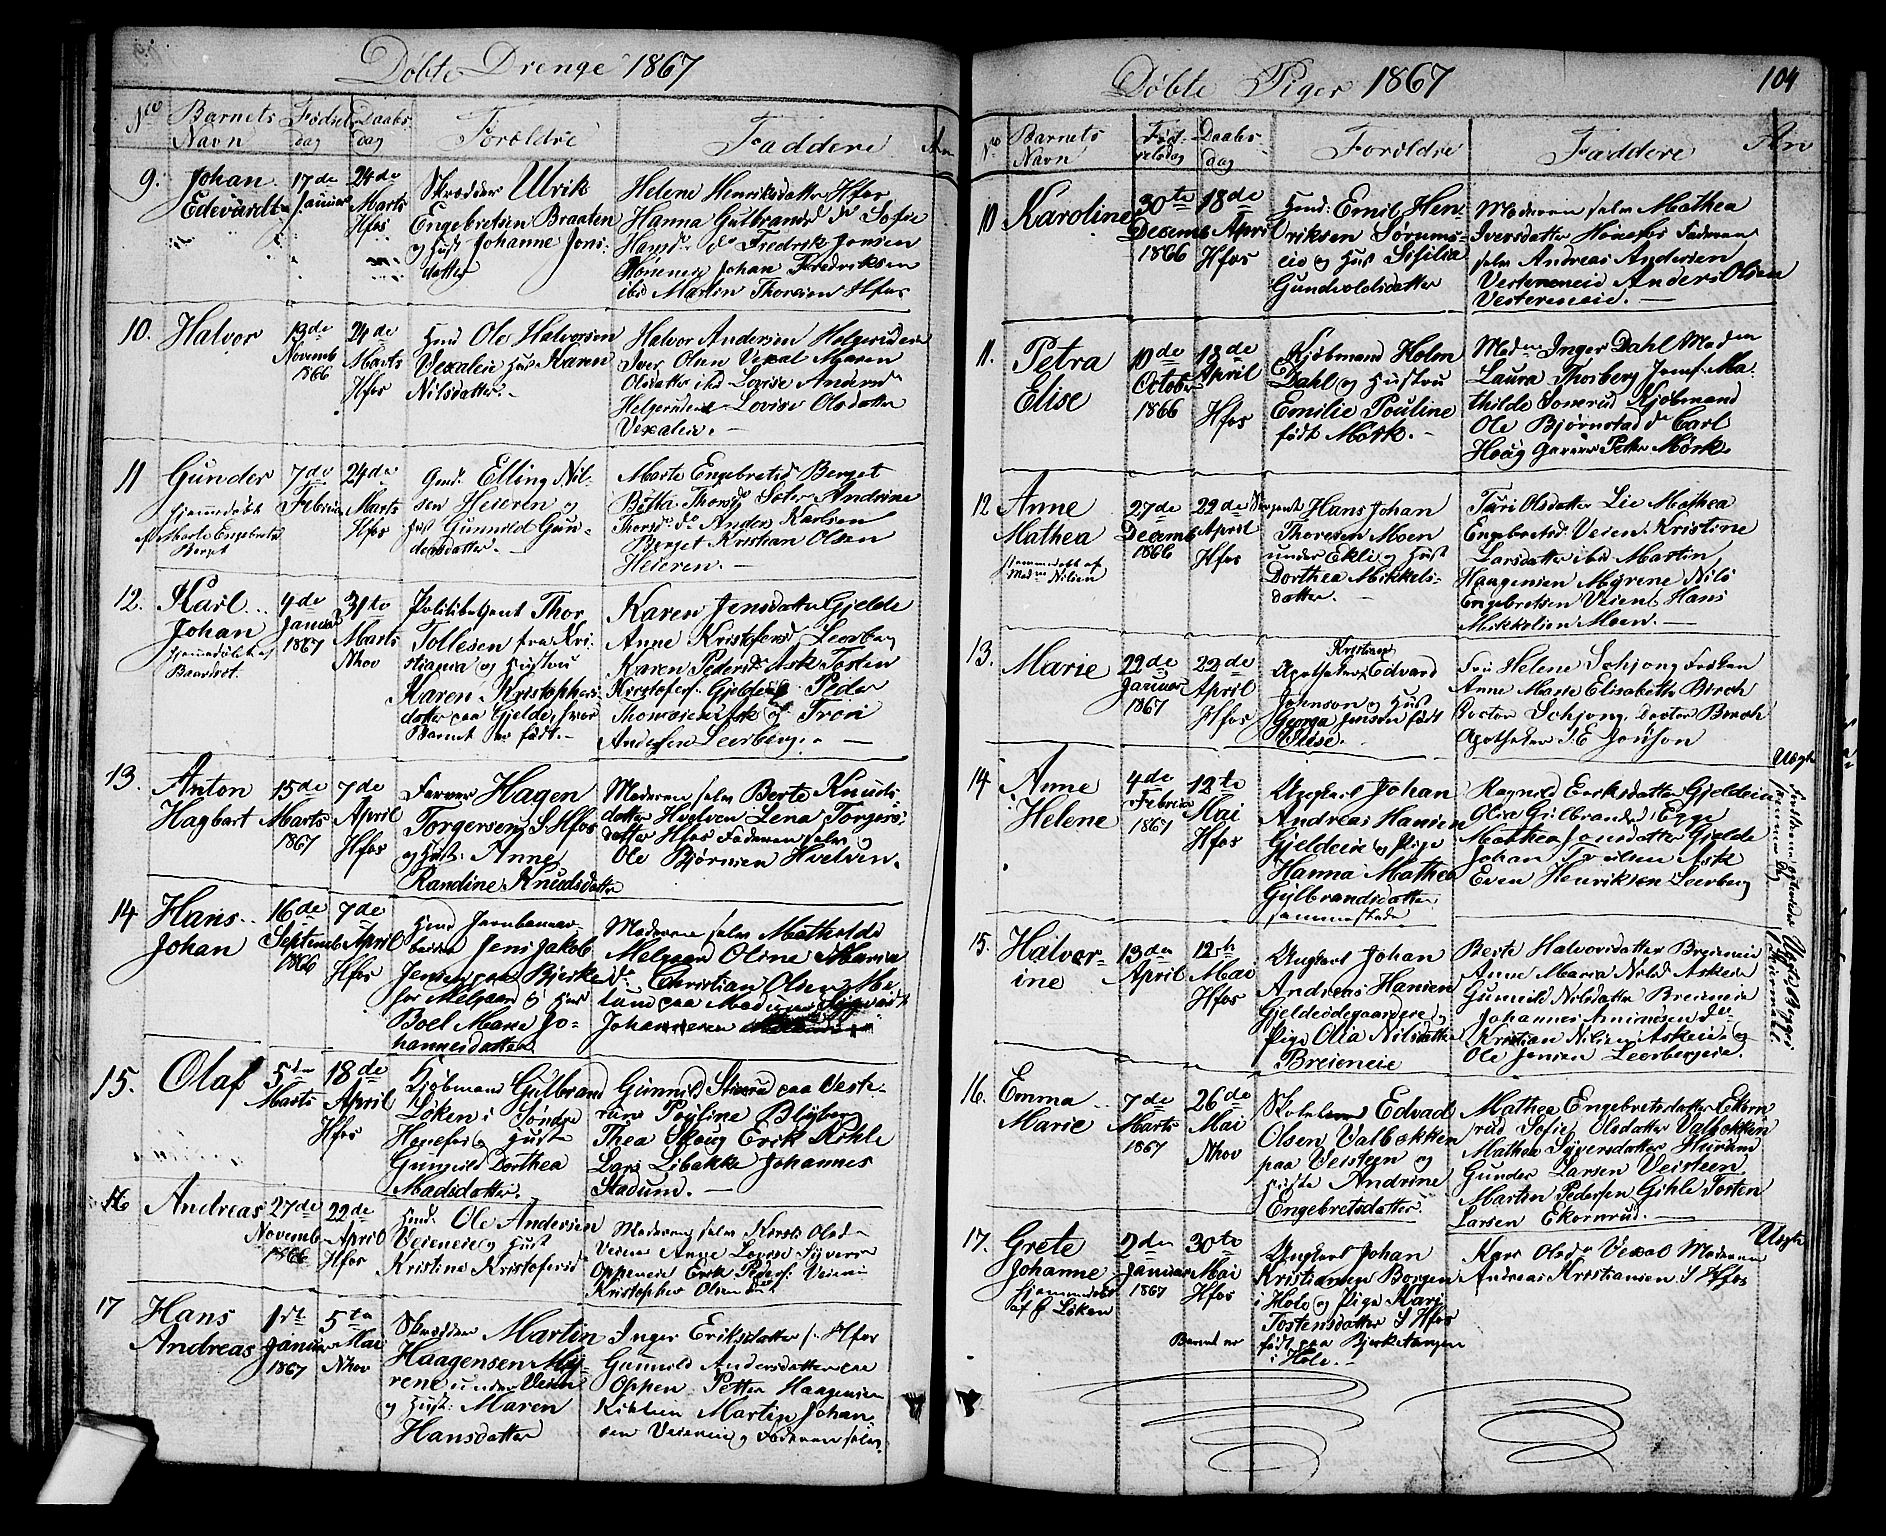 Döbte Drenge 1867
No Barnets Navn Födsels dag Daabs dag Forældre Faddere An
9. Johan Edevardt 17de Januar 24de Marts Hfos
Skrædder Ulrik
Engebretsen Braaten
og Hust Johanne Jons-
datter
Helene Henriksdatter Hfos
Hanna Gulbrandsd do Sofie
do Fredrik Jonsen
Johan Fredriksen
ibd Martin Thoresen Hfos
10. Halvor 13de Novemb 1866 24de Marts Hfos
Hmd Ole Halvorsen
Vexaleie Hust Karen
Nilsdatter.-
Halvor Andersen Helgerudeie
Iver Olsen Vexal Maren
Olsdatter ibd Lovise Andersd
Helgerudeie Lovise Olsdatter
Vexaleie.-
11 Gunder 7de Februar 24de Marts Hfos
hjemmedöbt
af Marte Engebretsd
Berget
Gmd. Elling Nil-
sen Heieren og
Hust Gunnild Gun-
dersdatter.-
Marte Engebretsd Berget
Thorsd Soler Andrine
Thorsd do Anders Karlsen
Berget Kristian Olsen
Heieren.-
12. Karl Johan 4de Januar 1867 31te Marts Nhov
hjemmedöbt af
Politibetjent Thor
Tollefsen fra Kri-
stiania og Hustru
Karen Kristophers-
datter paa Gjelde, hvor
Barnet er födt.-
Karen Jensdatter Gjelde
Anne Kristofersd Leerberg
Karen Pedersd. Ask Tosten
Kristofers. Gjelde Peder
Thomesen Ask og Tron
Andersen Leerberg.-
13. Anton Hagbart 15de Marts 1867 7de April Hfos
Farver Hagen
Torgersen S Hfos
og Hust. Anne
Randine Knudsdatter
Moderen selv Berte Knuds-
datter Hvelven Lena Torgers-
datter Hfos Faderen selv
Ole Björnsen Hvelven.
14 Hans Johan 16de Septemb 1866 7de April Hfos
Hmd Jernbanear-
beider Jens Jakob
Jensen paa Bjerke
for Melgaar og Hust
Boel Marie Jo-
hannesdatter.
Moderen selv Mathilde
Melgaard Oline Maria
do Christian Olsen
Johannesen
15. Olaf 5te Marts 18de April Hfos
Kjöbmand Gulbrand
Löken i Söndre
Hönefos og Hust
Gunvild Dorthea
Madsdatter.
Gunnild paa Vest-
ern Pauline Blyberg
Thea Skoug Erik Kihle
Lars Libakke Johannes
Stadum.-
16 Andreas 27de Novemb 1866 22de April Hfos
Hmd. Ole Andersen
Veieneie og Hust
Kristine Kristofersd
Moderen selv Kirsti Olsd-
Veien Anne Lovise Syvers-
Oppeneie Erik Peders. Veien
Kristopher Olsen ibd
17 Hans Andreas 1ste Januar 1867 5te Mai Nhov
Skrædder Martin
Haagensen My-
rene under Veien
og Hust: Maren
Hansdatter
Inger Eriksdatter S. Hfos
Gunnild Andersdatter paa
Oppen Petter Haagensen
Martin Johan-
sen Veieneie og Faderen selv
Döbte Piger 1867 104
No Barnets Navn Föd- selsdag Daabs- dag Forældre Faddere An
10 Karoline 30te Decemb 1866 18de April Hfos
Hmd: Emil Hen-
riksen Sörums-
eie og Hust Sisilia
Gundvoldsdatter
Moderen selv Mathea
Iversdatter Hönefos Faderen
selv Andreas Andersen
Vesterneneie Anders Olsen
Vesterneneie.-
11. Petra Elise 10de October 1866 18de April Hfos
Kjöbmand Holm
Dahl og Hustru
Emilie Pouline
födt Mörk.-
Madm Inger Dahl Madm
Laura Thorberg Jomf. Ma-
thilde Somrud Kjöbmand
Ole Björnstad do Carl
Haug Garver Petter Mörk.
12 Anne Mathea 27de Decemb 1866 22de April Hfos
hjemmedöbt af
Madm Nilsen
Sergent Hans Johan
Thoresen Moen
under Ekli og Hust
Dorthea Mikkels-
datter.-
Turi Olsdatter Lie Mathea
Engebretsd. Veien Kristine
Larsdatter ibd Martin
Haagensen Myrene Nils
Engebretsen Veien Hans
Mikkelsen Moen.-
13. Marie 22de Januar 1867 22de April Hfos
Kristian
Apotheker Edvard
Johnson og Hust
Georga Jensen födt
Wiese.-
Fru Helene Schjong Frøken
Anne Marie Elisabeth Birch
Doctor Schjong Doctor Birch
Apotheker J. E Jonson
14 Anne Helene 4de Februar 1867 12te Mai Hfos
Ungkarl Johan
Andreas Hansen
Gjeldeeie og Pige
Hanna Mathea
Gulbrandsdatter
sammesteds
Ragnild Eriksdatter Gjeldeeie
Olia Gulbrandsd. Egge
Mathea Jonsdatter Gjelde
Johan Ask
Even Henriksen Leerberg
Uægte
15. Halvor- ine 13de April 12te Mai Hfos
Ungkarl Johan
Andreas Hansen
Gjeldeödegaardeie og
Pige Olia Nilsdatter
Breieneie
Berte Halvorsdatter Breieneie
Anne Maria Nilsd Askeie
Gunvild Nilsdatter Breieneie
Johannes Amundsen do
Kristian Nilsen Askeie og
Ole Jensen Leerbergeie.
16. Emma Marie 7de Marts 1867 26de Mai Nhov
Skolelærer Edvad
Olsen Valbökken
paa Veisteen og
Hustr Andrine
Engebretsdatter.
Mathea Engebretsdatter Ekorn-
rud Sofie Olsdatter Valbökken
Mathea Syversdatter Heirum
Gunder Larsen Veisteen
Martin Pedersen Gihle Tosten
Larsen Ekornrud.-
17. Grete Johanne 2den Januar 1867 30te Mai Hfos
hjemmedöbt
af G Löken
Ungkarl Johan
Kristiansen Borgen
i Hole og Pige Kari
Tostensdatter S Hfos
Barnet er födt paa Bjerketangen
i Hole.-
Kari Olsdr Vexal Moderen
Andreas Kristiansen S Hfos
Uægte